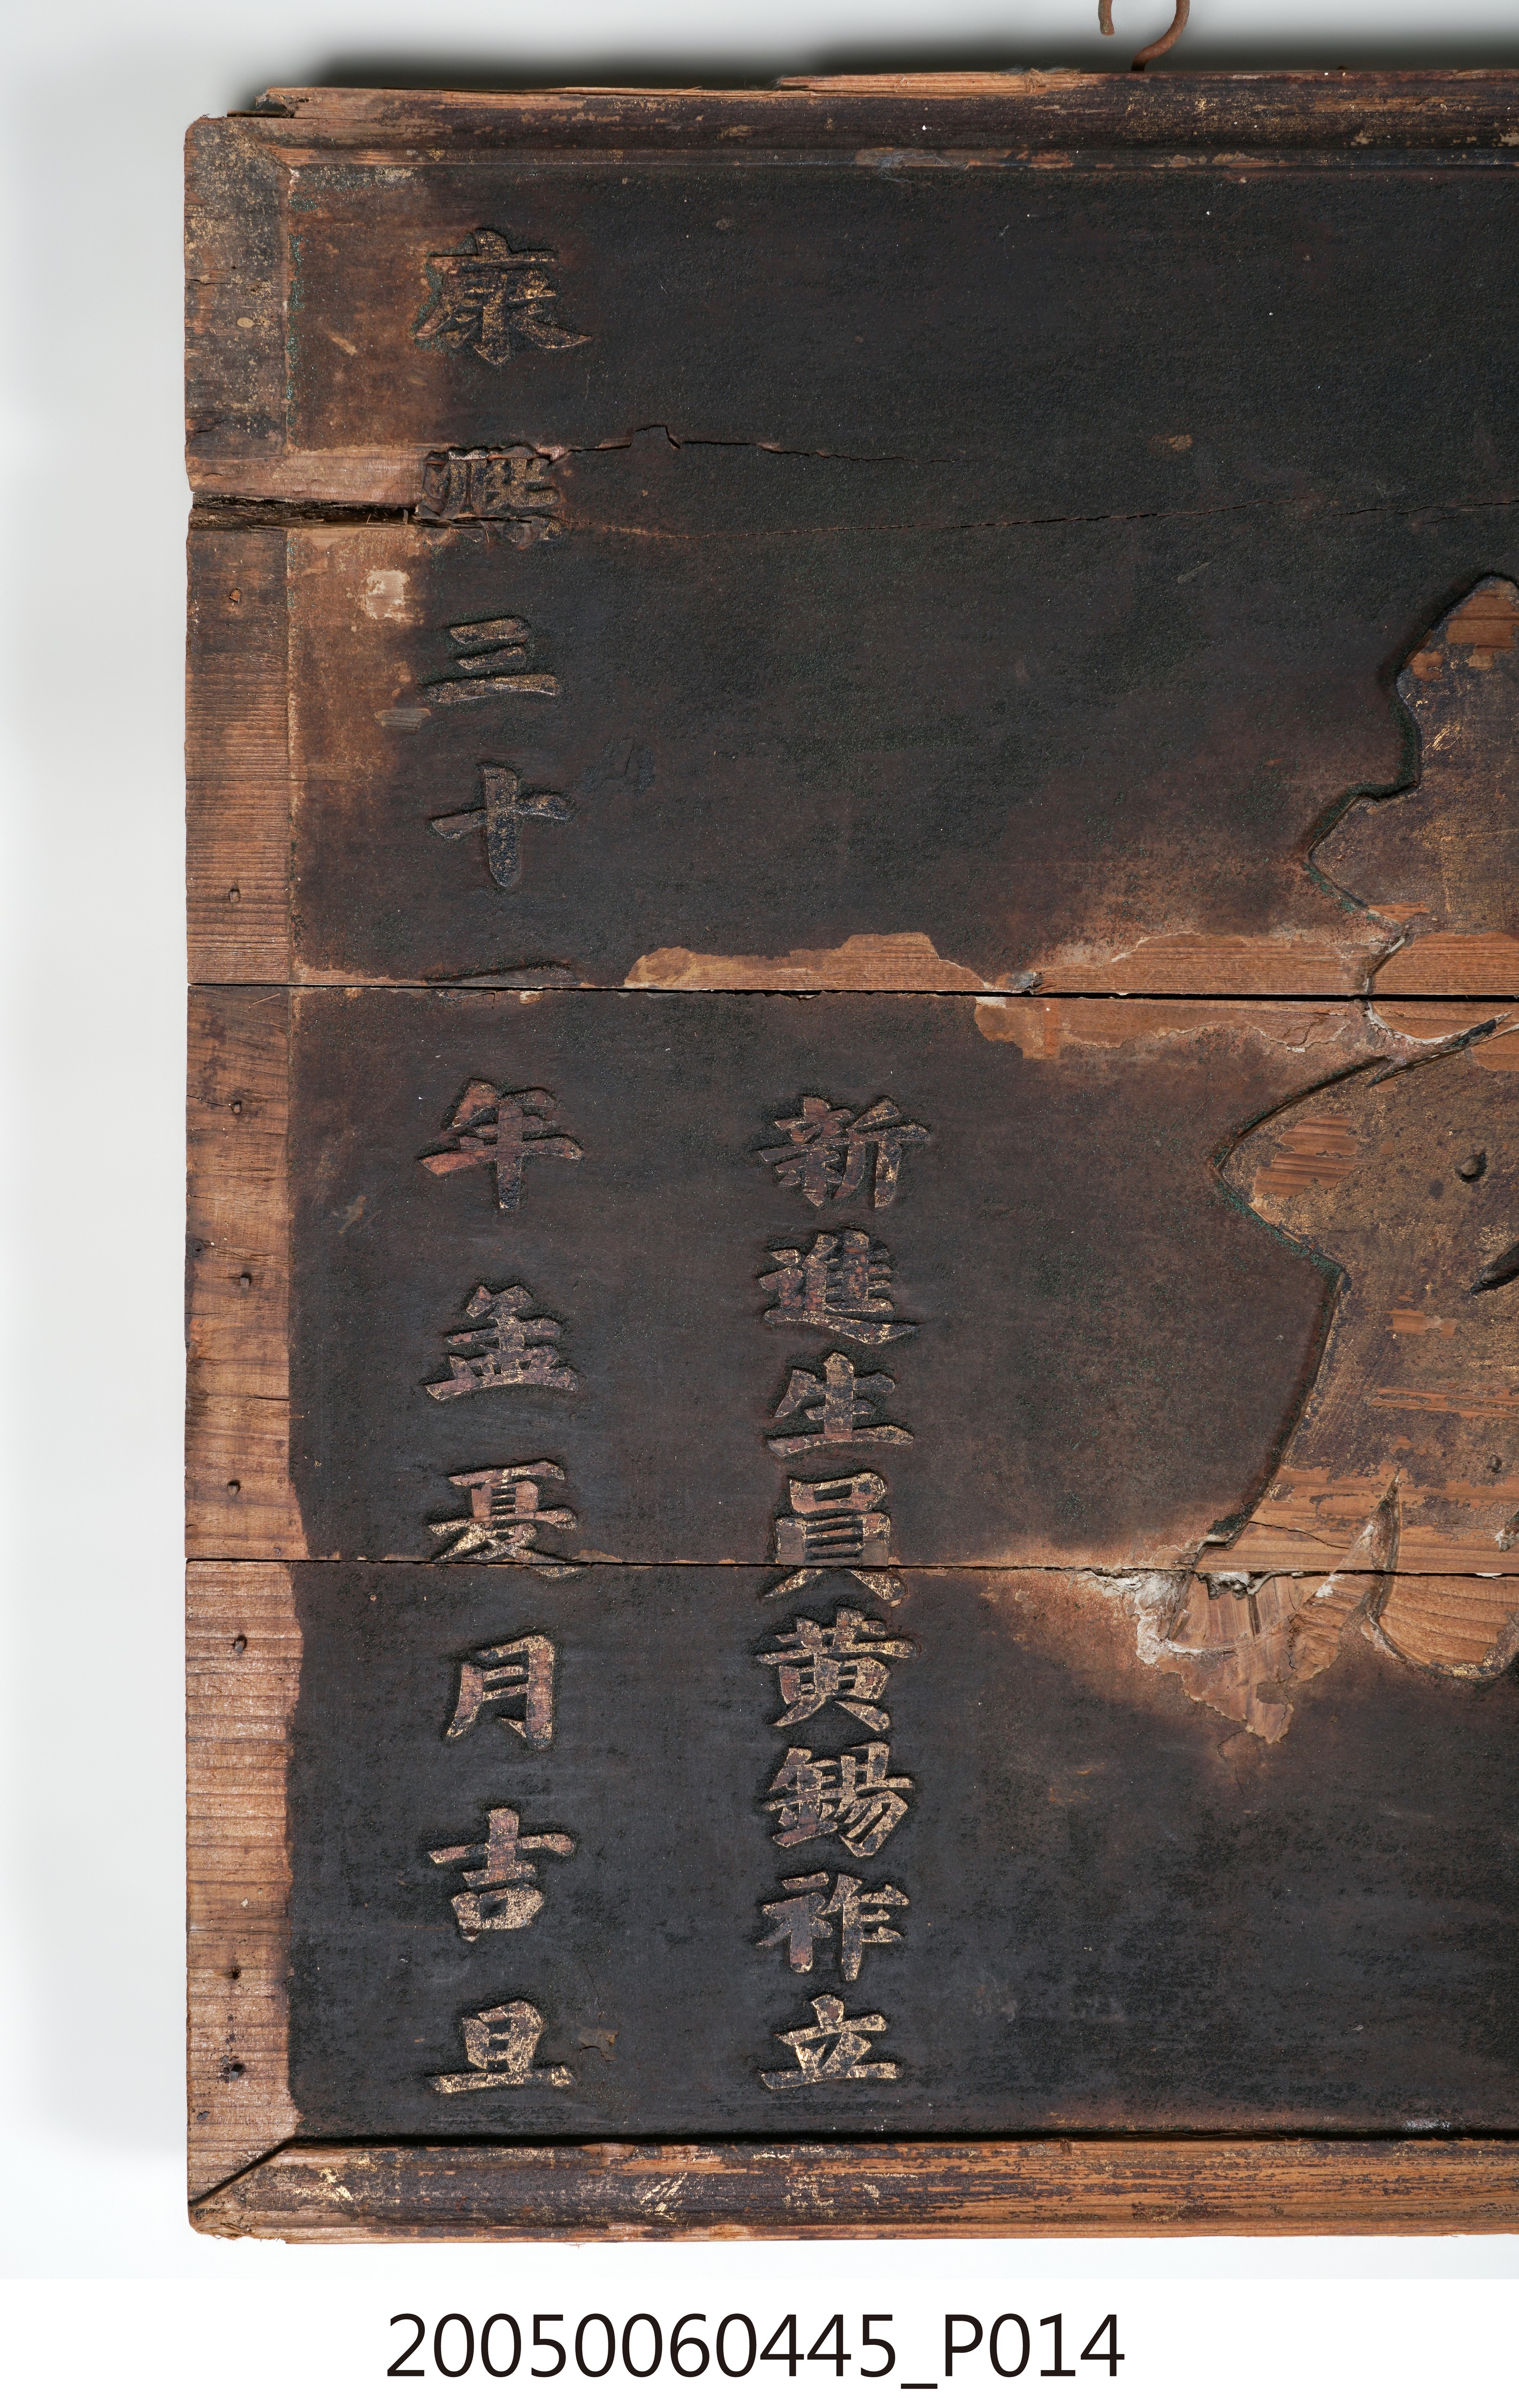 新進生員黄錫祚立
康熙三十一年孟夏月吉旦
20050060445_P014